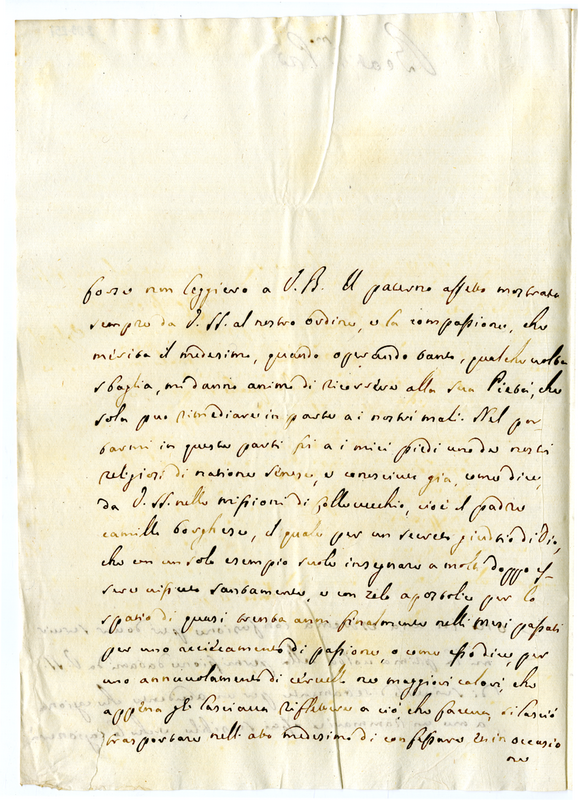 forse non leggiero a V. B. Il paterno affetto mostrato
sempre da V. SS. al nostro ordine, e la compassione, che
merita il medesimo, quando operando tanto, qualche volta
sbaglia, mi danno animo di ricorrere alla sua Pietà, che
sola può rimediare in parte a i nostri mali. Nel por
tarmi in queste parti fu a i miei piedi uno de nostri
religiosi di natione senese, e conosciuto già, come dice,
da V. SS. nelle missioni di, cioè il padre
Camillo Borghese, il quale per un secreto giuditio di Dio,
che con un solo esempio suole insegnare a molti, doppo es-
sere vissuto santamente, e con zelo apostolico per lo
spatio di quasi trenta anni finalmente nelli mesi passati
per uno acciecamento di passione o come esso dice, per
uno annuvolamento di cervello ne maggiori calori, che
appena gli lasciava riflettere a ciò, che faceva si lasciò
trasportare nell' atto medesimo di confessare in occasio
ne